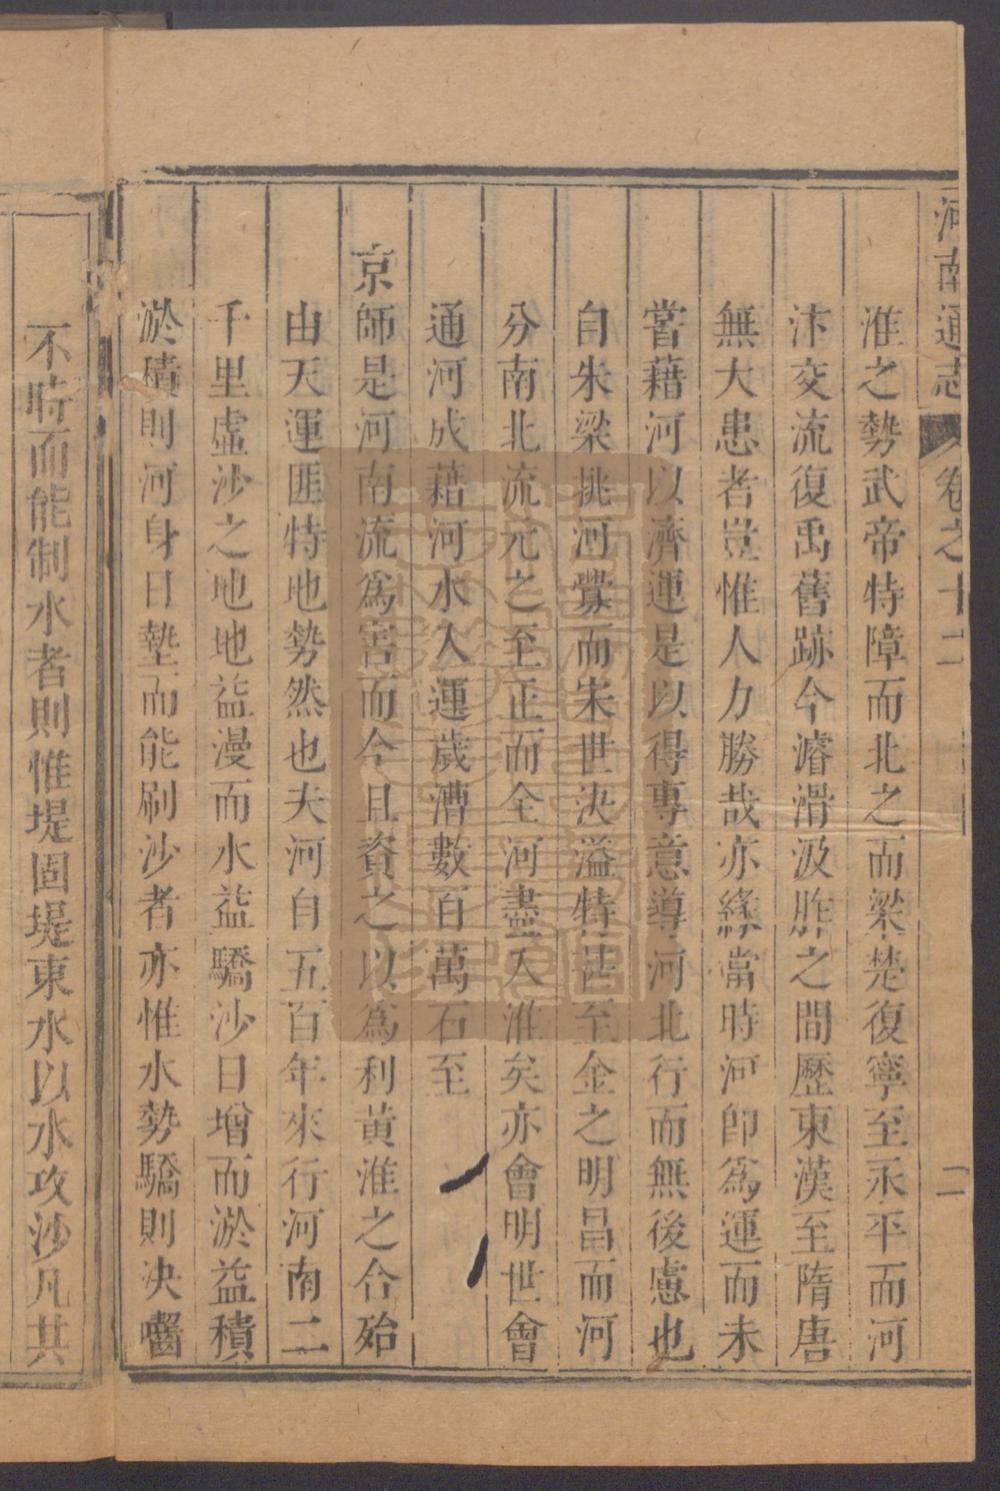 河南通志 卷之十二 二
淮之勢武帝特障而北之而梁楚復寧至永平而河
汴交流復禹舊跡今濬滑汲胙之間歷東漢至隋唐
無大患者豈惟人力勝哉亦緣當時河卽爲運而未
嘗藉河以濟運是以得專意導河北行而無後慮也
自朱梁挑河釁而宋世決溢特甚至金之明昌而河
分南北流元之至正而全河盡入淮矣亦會明世會
通河成藉河水入運歲漕數百萬石至
京師是河南流爲害而今且資之以爲利黃淮之合殆
由天運匪特地勢然也夫河自五百年來行河南二
千里虛沙之地地益漫而水益驕沙日增而淤益積
淤積則河身日墊而能刷沙者亦惟水勢驕則决嚙
不時而能制水者則惟堤固堤東水以水攻沙凡其